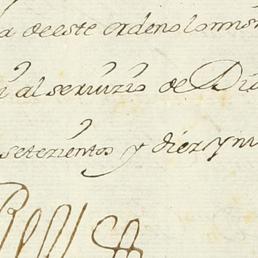 a de este orden lo mis
al seruizio de Di
setezientos y diez y nu